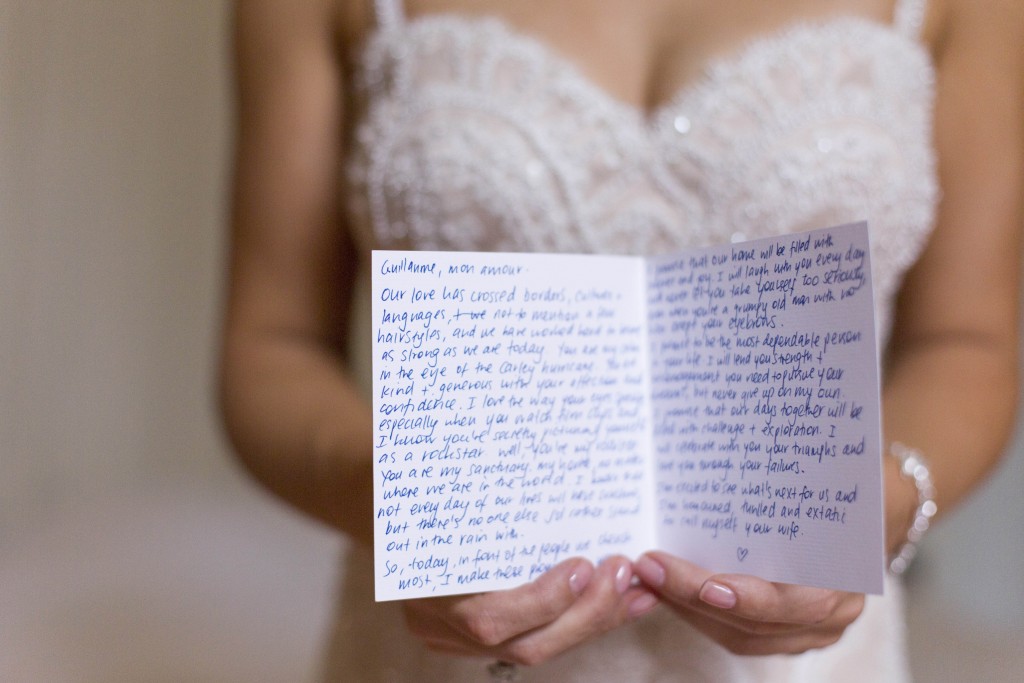 Guillaume, mon amour.
Our love has crossed borders, cultures +
languages, + we not to mention a few
hairstyles, and we have worked hard to become
as strong as we are today. You are my calm
in the eye of the Carley hurricane. You're
kind + generous with your affection and
confidence. I love the way your eyes
especially when you watch
I know you're secretly picturing yourself
as a rockstar. Well, you're my rockstar.
You are my sanctuary, my home, no matter
where we are in the world. I know that
not every day of our lives will have sunshine,
but there's no one else I'd rather stand
out in the rain with.
So, today, in front of the people we cherish
most, I make these
I promise that our home will be filled with
and joy. I will laugh with you every day
and never let you take yourself too seriously,
even when you're a grumpy old man with no
one except your eyebrows.
I promise to be the most dependable person
in your life. I will lend you strength +
encouragement you need to pursue your
but never give up on my own.
I promise that our days together will be
filled with challenge + exploration. I
will celebrate with you your triumphs and
you through your failures.
I'm excited to see what's next for us and
I'm honoured, thrilled and extatic
to call myself your wife.
♡